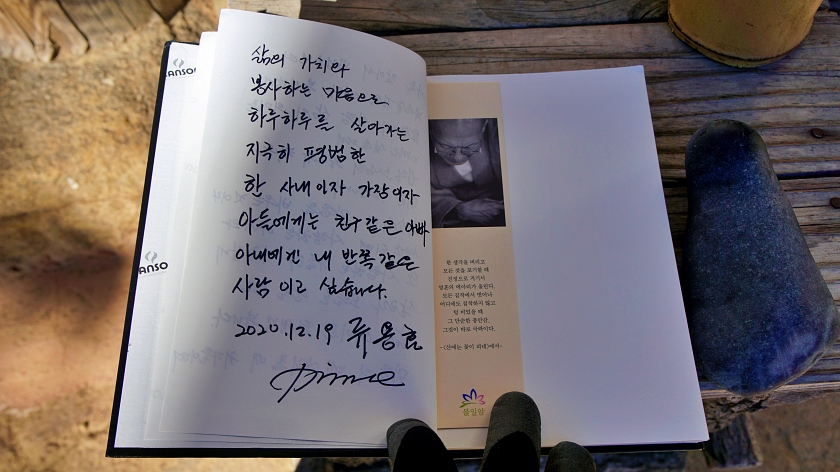 ANSO
ANSO
삶의 가치와
봉사하는 마음으로
하루하루를 살아가는
지극히 평범한
한 사내이자 가장이자
아들에게는 친구같은 아빠
아내에겐 내 반쪽같은
사람이고 싶습니다.
2020.12.19 류용효
한 생각을 버리고
모든 것을 포기할 때
진정으로 거기서
영혼의 메아리가 울린다.
모든 집착에서 벗어나
어디에도 집착하지 않고
텅 비었을 때
그 단순한 충만감,
그것이 바로 극락이다.
-<산에는 꽃이 피네>에서-
불일암